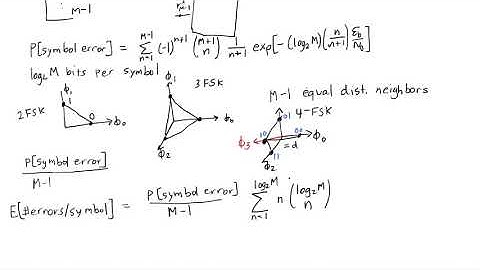 M-1
P[symbol error] = \sum_{n=1}^{M-1} (-1)^{n+1} \binom{M+1}{n} \frac{1}{n+1} exp[-(log₂M)(\frac{n}{n+1})\frac{ε_b}{N_0}]
log₂M bits per symbol
ϕ₁
3FSK
M-1 equal dist. neighbors
2FSK
ϕ₁
1
0
ϕ₀
ϕ₀
ϕ₂
4-FSK
01
10
00
ϕ₀
ϕ₃
=d
11
ϕ₂
\frac{P[symbol error]}{M-1}
E[#errors/symbol] = \frac{P[symbol error]}{M-1} \sum_{n=1}^{log₂M} n \binom{log₂M}{n}